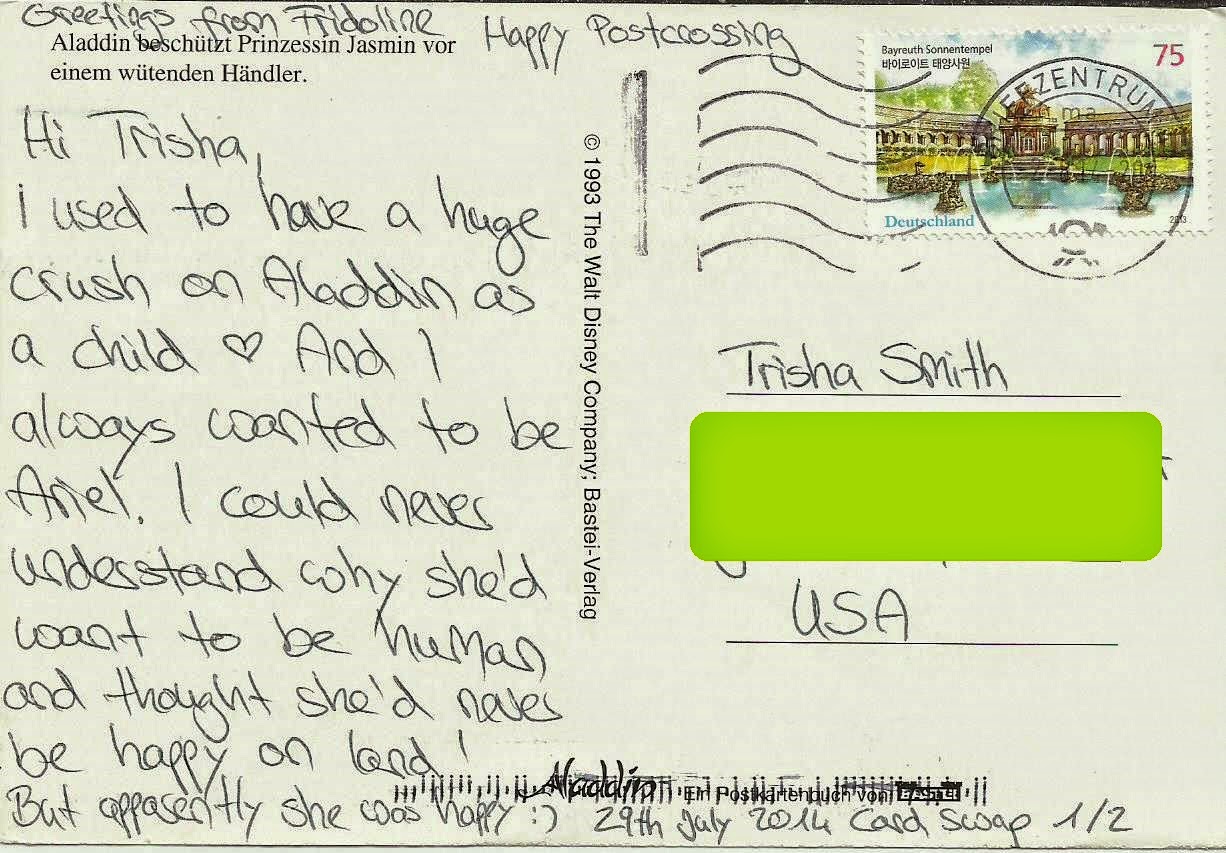 Greetings from Fridoline Happy Postcrossing
Aladdin beschützt Prinzessin Jasmin vor
einem wütenden Händler.
Hi Trisha,
i used to have a huge
crush on Aladdin as
a child ♡ And I
always wanted to be
Ariel. I could never
understand why she'd
want to be human
and thought she'd never
be happy on land!
But apparently she was happy :) 29th July 2014 Card Swap 1/2
© 1993 The Walt Disney Company; Bastei-Verlag
Bayreuth Sonnentempel
바이로이트 태양사원
75
Deutschland
2013
BRIEFZENTRUM
Trisha Smith
USA
Aladdin
Ein Postkartenbuch von